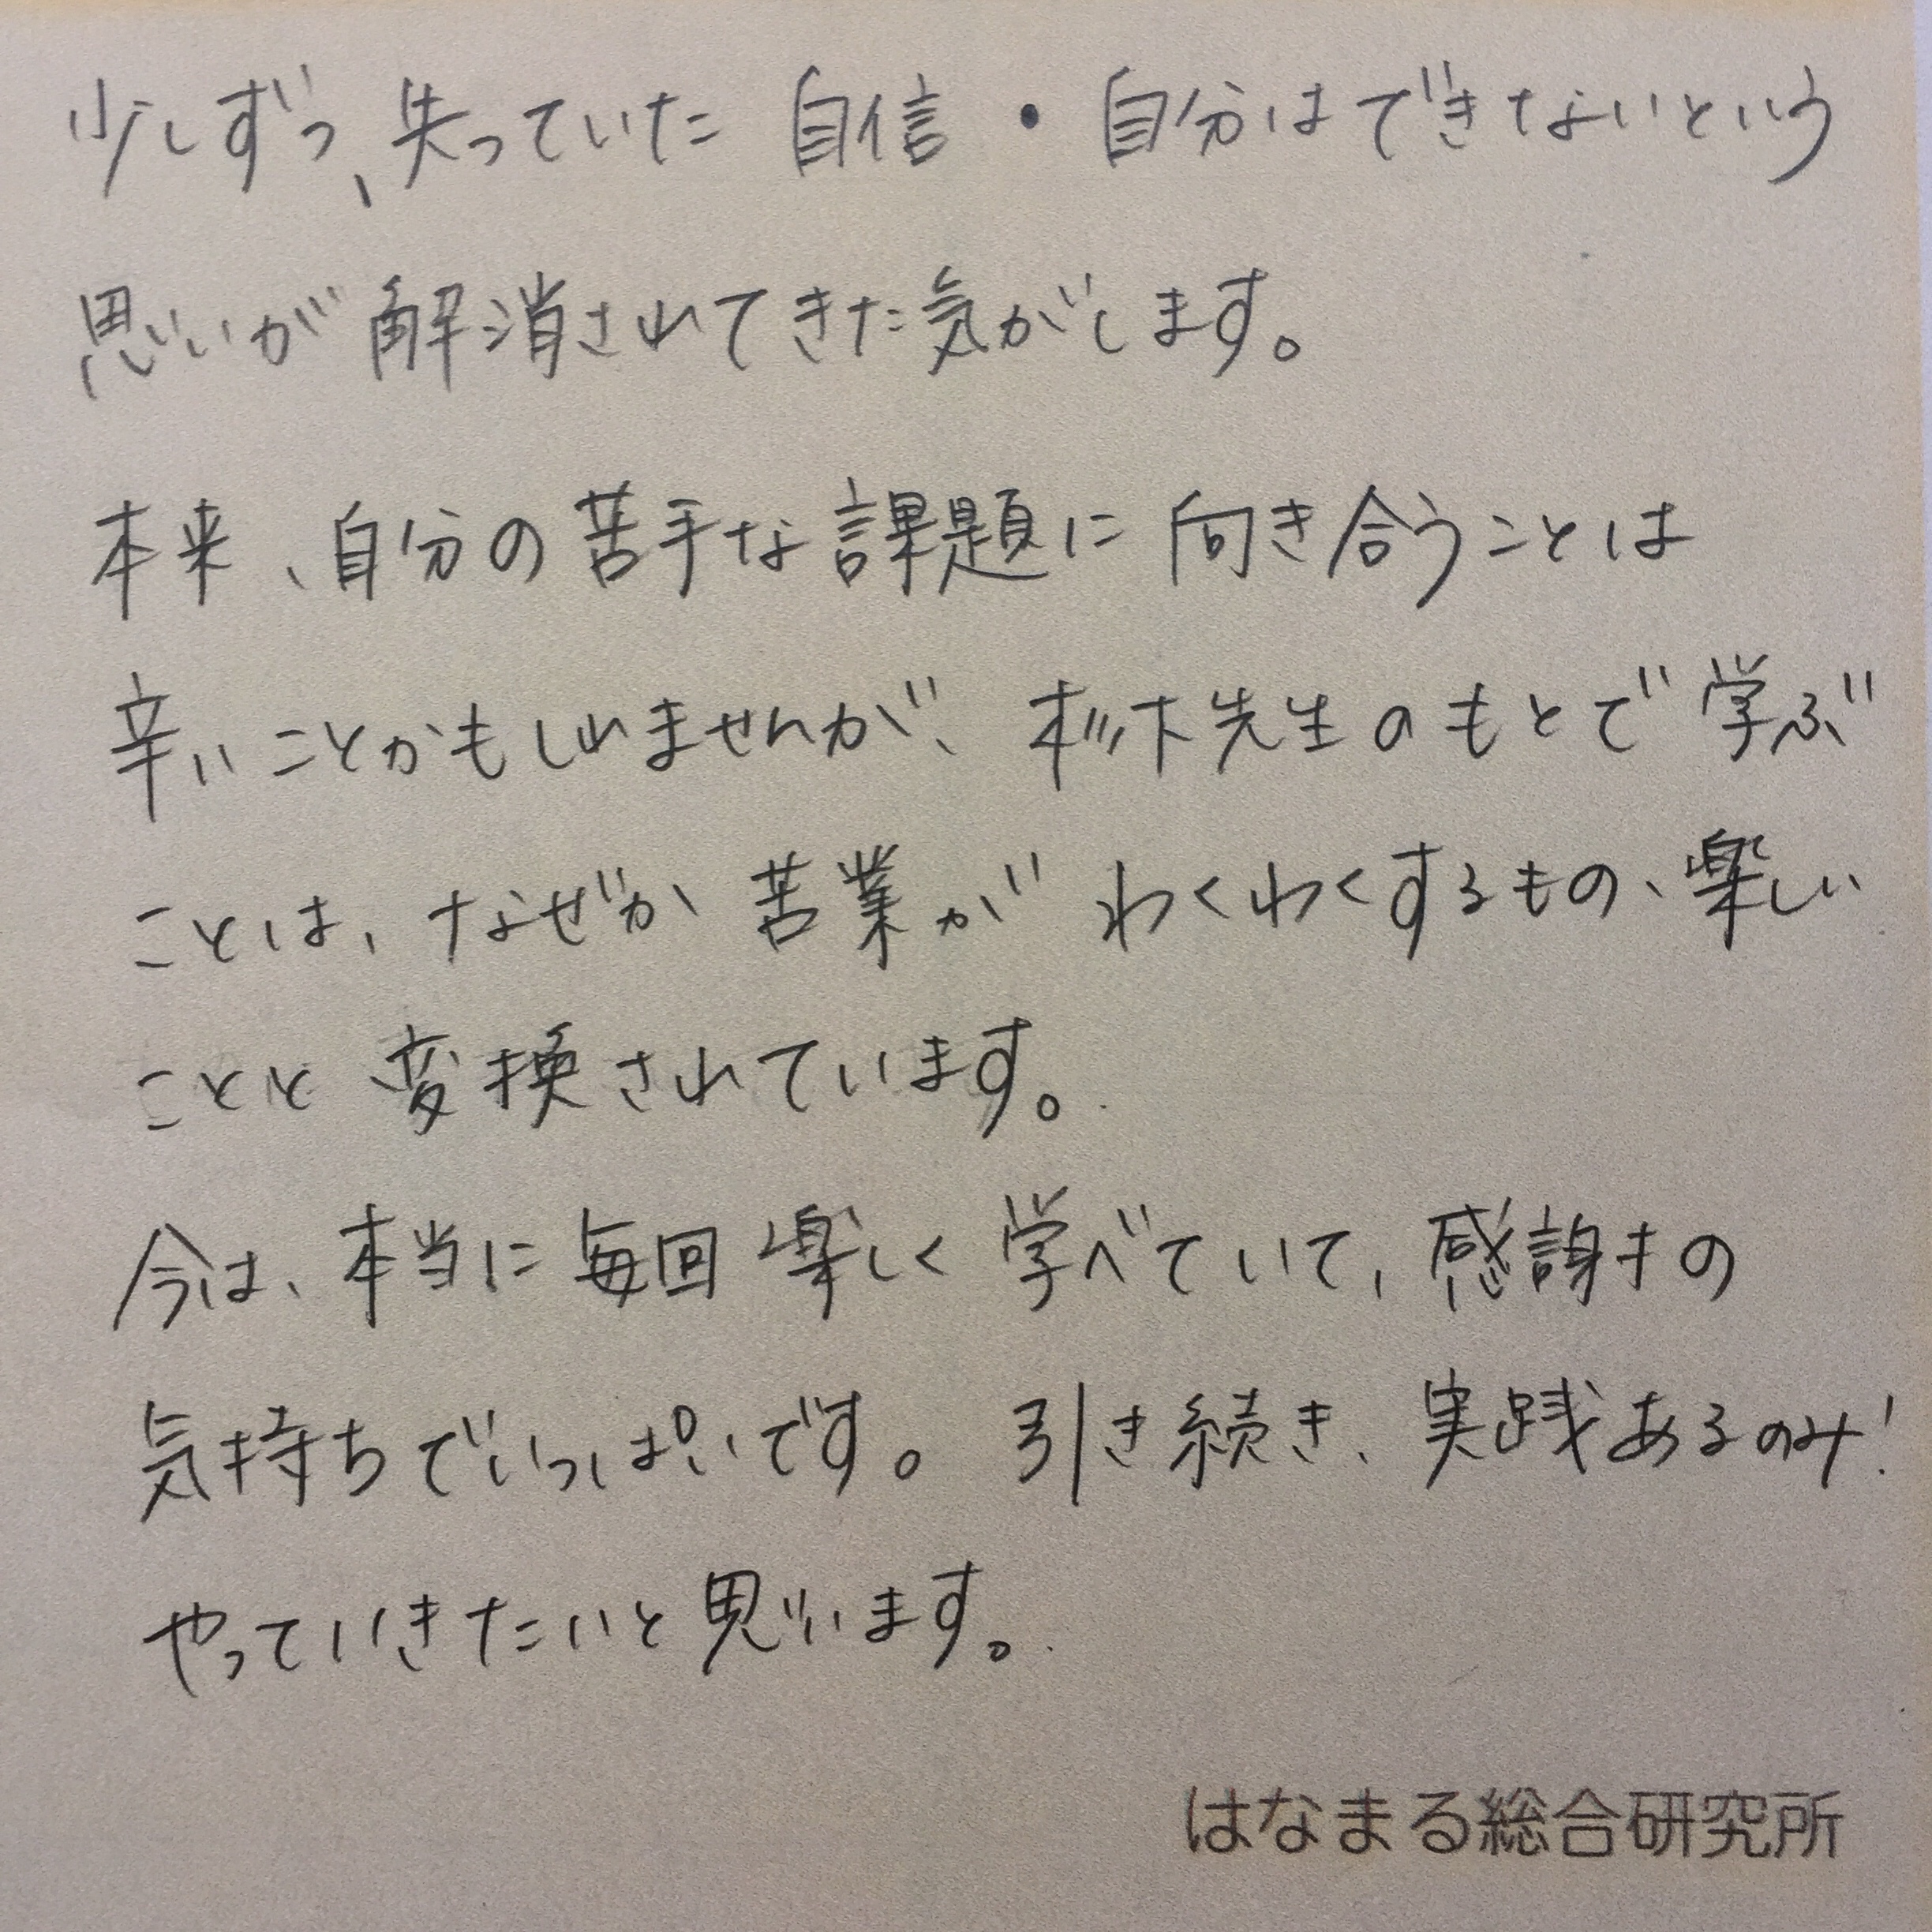 少しずつ、失っていた 自信・自分はできないという
思いが解消されてきた気がします。
本来、自分の苦手な課題に向き合うことは
辛いことかもしれませんが、杉下先生のもとで学ぶ
ことは、なぜか苦業がわくわくするもの、楽しい
ことと変換されています。
今は、本当に毎回楽しく学べていて、感謝の
気持ちでいっぱいです。引き続き、実践あるのみ!
やっていきたいと思います。
はなまる総合研究所